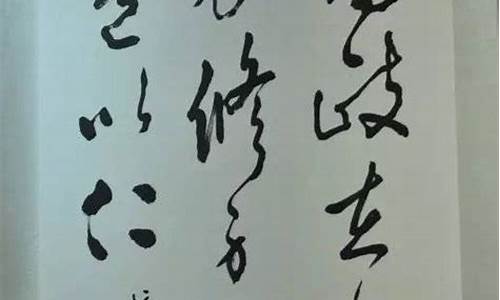 政在
修身
道以仁